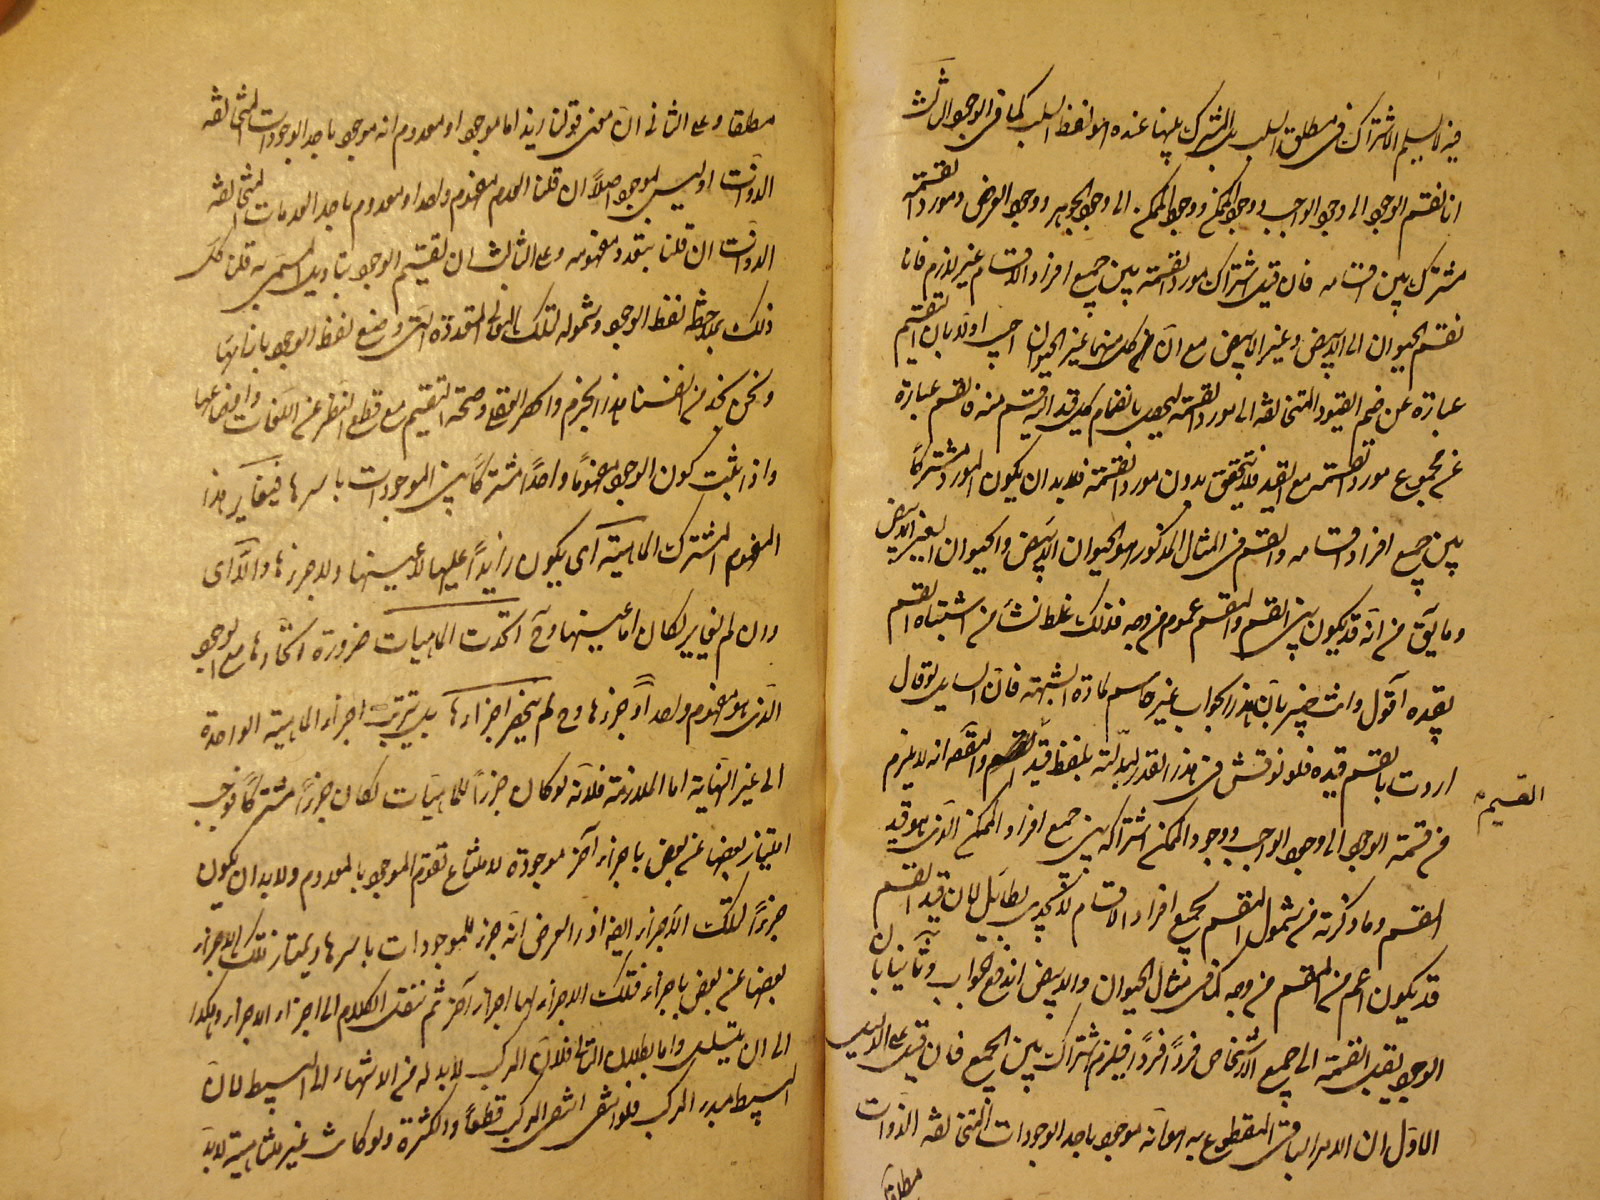 فيه لا يسلم الاشتراك في مطلق السلب بل المشترك ههنا عنده هو لفظ السلب كما في الوجه الثالث
انا نقسم الوجود الى وجود الواجب ووجود الممكن ووجود الممكن الى وجود الجوهر ووجود العرض ومورد القسمة
مشترك بين اقسامه فان قيل اشتراك مورد القسمة بين جميع افراد الاقسام غير لازم فانا
نقسم الحيوان الى الابيض وغير الابيض مع ان في كل منهما غير الحيوان اجيب اولا بان التقسيم
عبارة عن ضم القيود المتخالفة الى مورد القسمة ليحصل بانضمام كل قيد اليه قسم منه فالقسم عبارة
عن مجموع مورد القسمة مع القيد فلا يتحقق بدون مورد القسمة فلا بد ان يكون المورد مشتركاً
بين جميع افراد اقسامه والقسم في المثال المذكور هو الحيوان الابيض والحيوان الغير الابيض
وما يق من انه قد يكون بين القسم والمقسم عموم من وجه فذلك غلط نشأ من اشتباه القسم
بقيده اقول وانت خبير بان هذا الجواب غير حاسم لمادة الشبهة فان السائل لو قال
اردت بالقسم قيده فلو نوقش في هذا القدر لبدلته بلفظ قيد القسم والمقصد انه لا يلزم
القسيم
من قسمة الوجود الى وجود الواجب ووجود الممكن اشتراكه بين جميع افراد الممكن الذي هو قيد
القسم وما ذكرته من شمول المقسم لجميع افراد الاقسام لا يجدي بطائل لان قيد القسم
قد يكون اعم من المقسم من وجه كما في مثال الحيوان والابيض اندفع الجواب وثانيا بان
الوجود يقبل القسمة الى جميع الاشخاص فرداً فرداً فيلزم اشتراك بين الجميع فان قيل على الدليل
الاول ان الامر الباقي المقطوع به هو انه موجود باحد الوجودات المتخالفة الذوات
مطلقا
مطلقا وعلى الثاني ان معنى قولنا زيد اما موجود او معدوم انه موجود باحد الوجودات المتخالفة
الذوات او ليس بموجود اصلاً ان قلنا العدم مفهوم واحد او معدوم باحد العدمات المتخالفة
الذوات ان قلنا بتعدد مفهومه وعلى الثالث ان تقسيم الوجود بتاويل المسمى به قلنا كل
ذلك بملاحظة لفظ الوجود وشموله لتلك المعاني المتعددة التي وضع لفظ الوجود بازائها
ونحن نجد من انفسنا هذا الجزم والحصر العقلي وصحة التقسيم مع قطع النظر عن اللغات واوضاعها
واذا ثبت كون الوجود مفهوماً واحداً مشتركاً بين الموجودات باسرها فيغاير هذا
المفهوم المشترك الماهية اى يكون زايداً عليها لا عينها ولا جزءها والا اى
وان لم يغاير لكان اما عينها وح اتحدت الماهيات ضرورة اتحادها مع الوجود
الذي هو مفهوم واحد او جزءها وح لم ينحصر اجزاءها بل يترتب اجزاء الماهية الواحدة
الى غير النهاية اما الملازمة فلانه لو كان جزءاً للماهيات لكان جزءاً مشتركاً فوجب
امتياز بعضها عن بعض باجزاء آخر موجودة لامتناع تقوم الموجود بالمعدوم ولا بد ان يكون
جزءاً لتلك الاجزاء ايضا اذ العرض انه جزء للموجودات باسرها ويمتاز تلك الاجزاء
بعضها عن بعض باجزاء فتلك الاجزاء لها اجزاء آخر ثم ننقل الكلام الى اجزاء الاجزاء وهكذا
الى ان يتسلسل واما بطلان التالي فلان المركب لا بد له من الانتهاء الى البسيط لان
البسيط مبدء المركب فلو انتفى انتفى المركب قطعاً والكثرة ولو كانت غير متناهية لابد